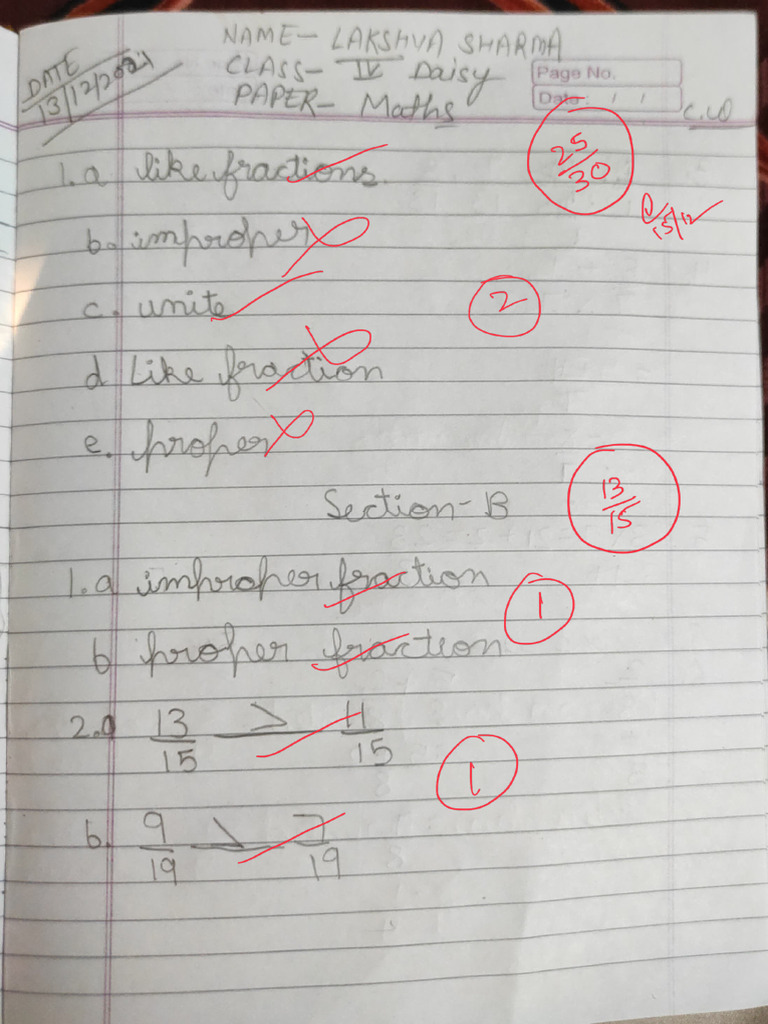 NAME- LAKSHVA SHARMA
DATE
13/12/2021
CLASS- IV Daisy
Page No.
PAPER- Maths
Date: / /
C.W
25/30
1.a like fractions.
15/12
b. improper
c. unite
2
d Like fraction
e. proper
Section-B
13/15
1.a improper fraction
1
b proper fraction
2.a 13/15 > 11/15
1
b. 9/19 > 7/19